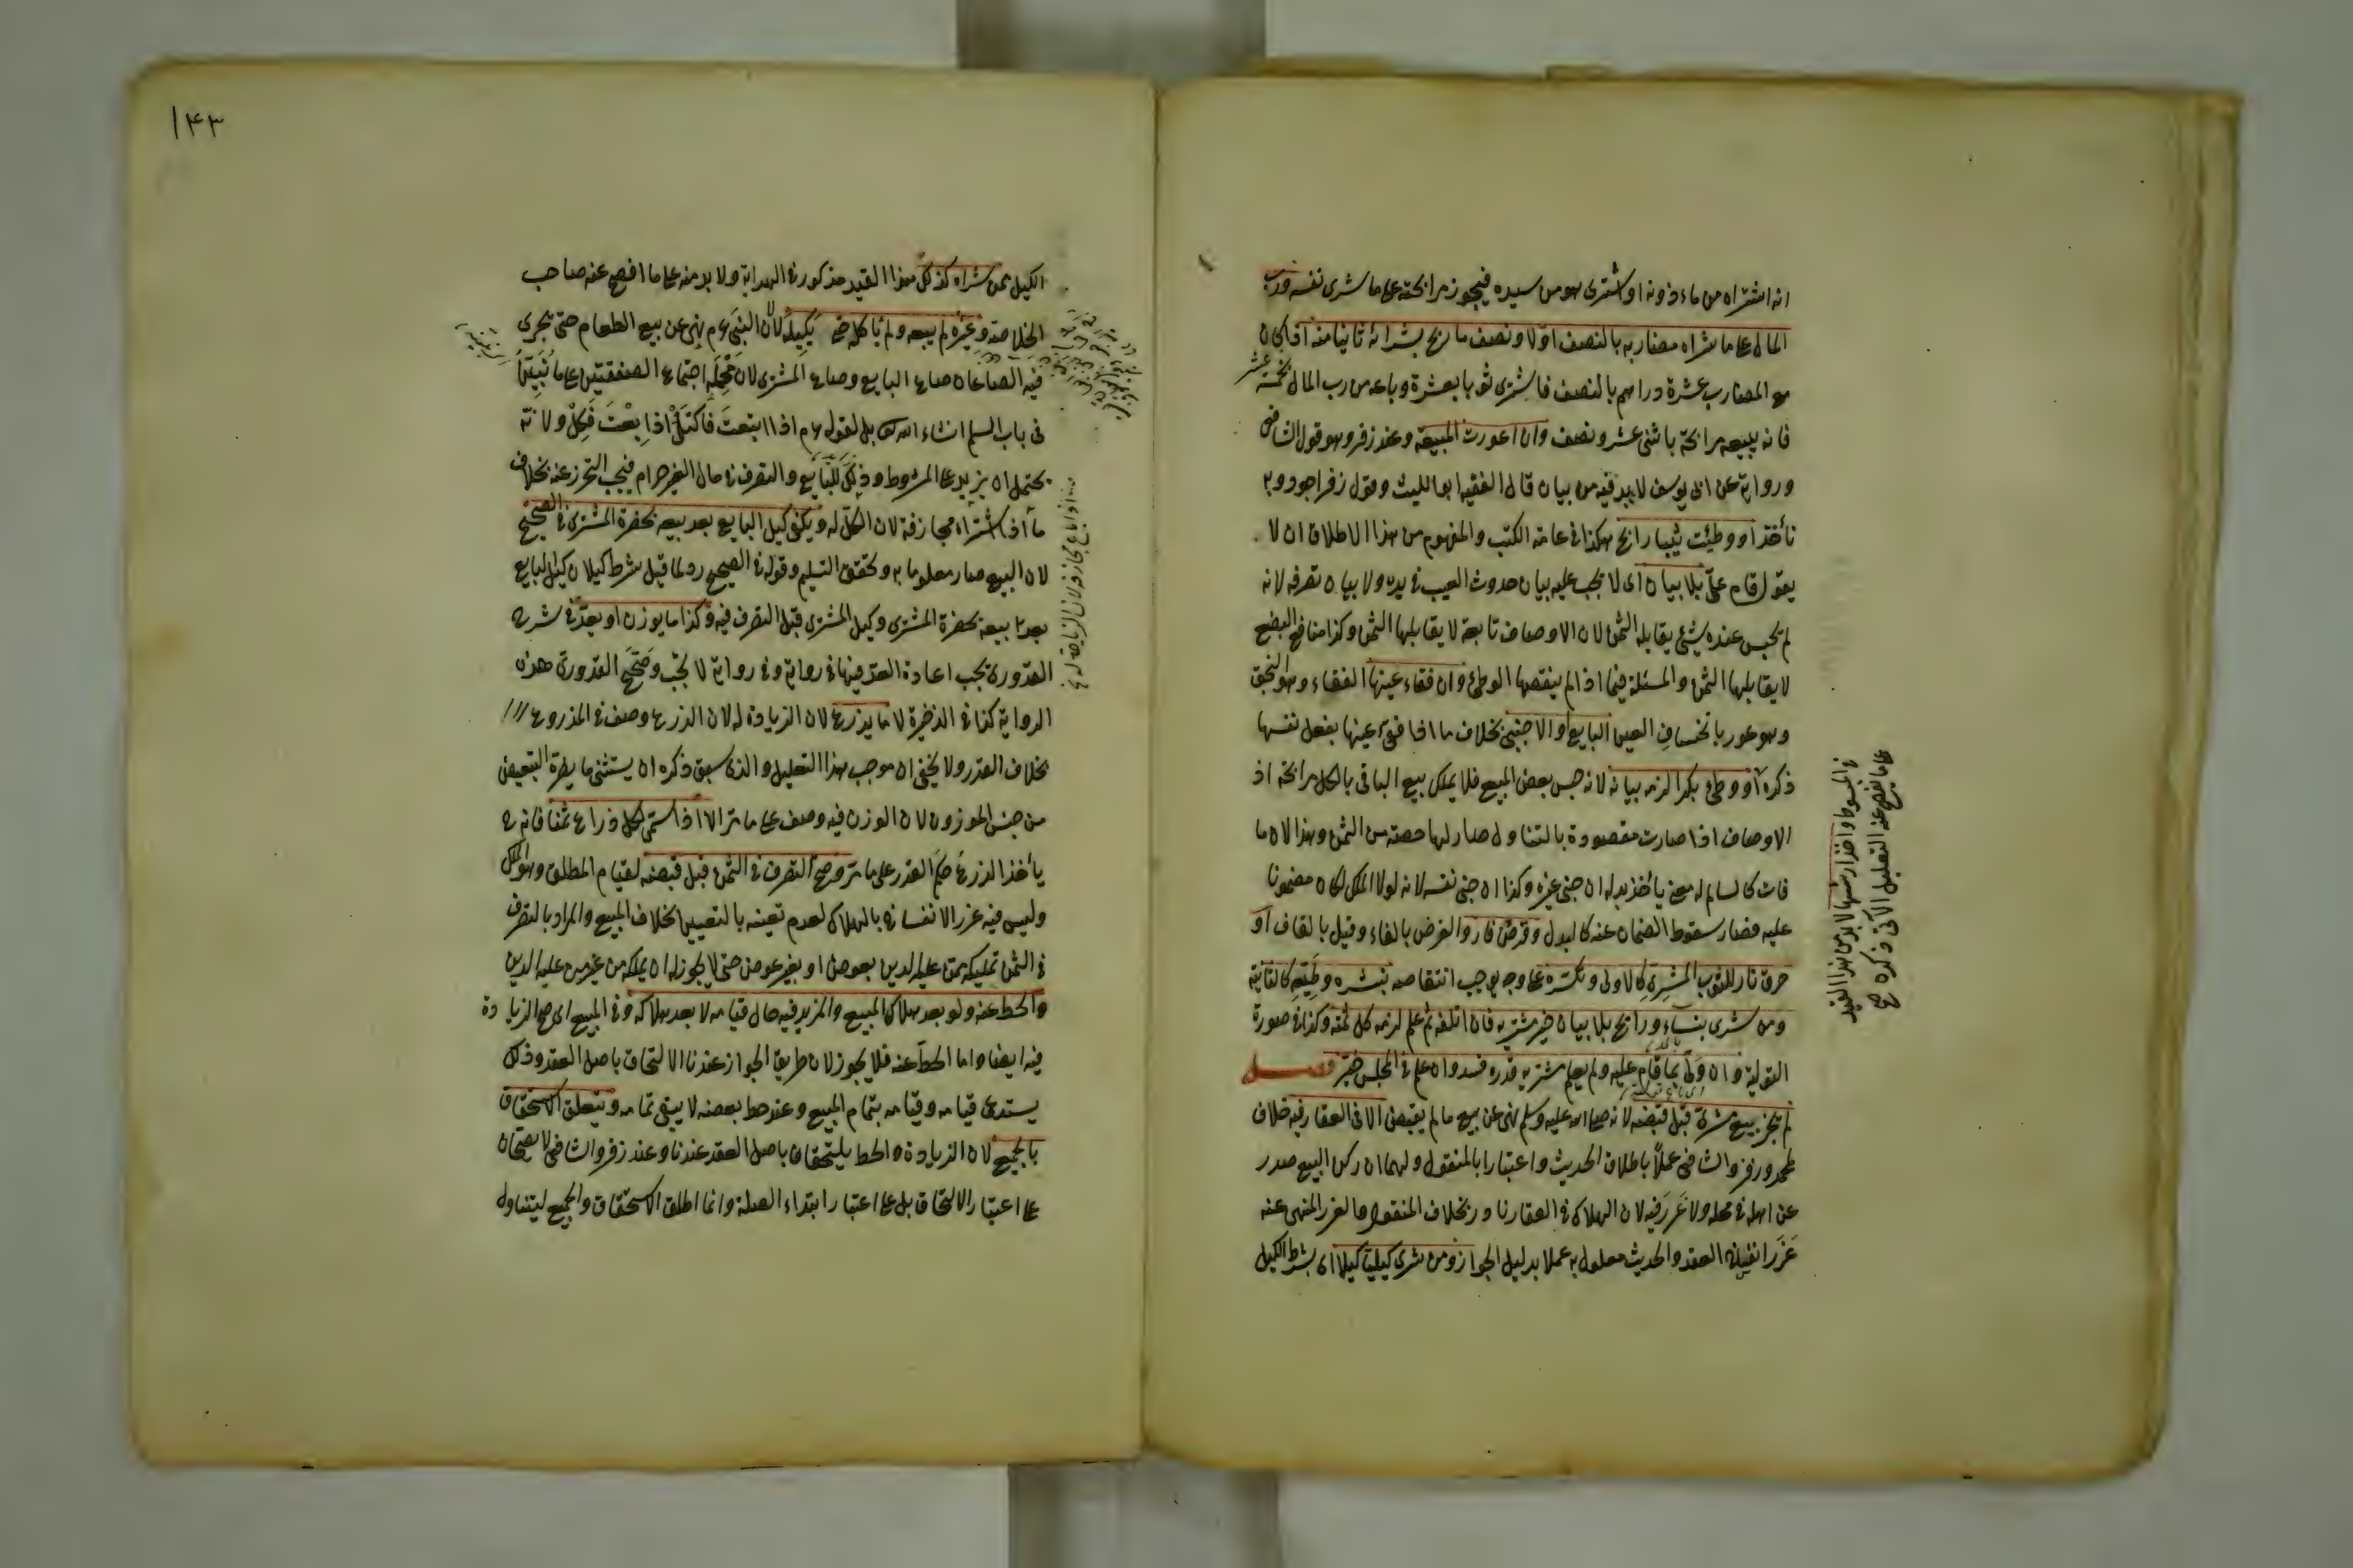 انه اشتراه من ماءذونه او اشترى هو من سيده فيجوز مرابحته على ما شرى نفسه ورب
المال على ما شراه مضاربه بالنصف اولا ونصف ما ربح بشرائه ثانيا منه اذا كان
مع المضارب عشرة دراهم بالنصف فاشترى ثوبا بعشرة وباعه من رب المال بخمسة عشر
فانه يبيعه مرابحة باثنى عشر ونصف وان اعورت المبيعة وعند زفر وهو قول الشافعى
ورواية عن ابى يوسف لابد فيه من بيان قال الفقيه ابو الليث وقول زفر اجود وبه
نأخذ او وطئت ثيبا رابح هكذا فى عامة الكتب والمفهوم من هذا الاطلاق ان لا
يقول قام علىّ بلا بيان اى لا يجب عليه بيان حدوث العيب فى يده ولا بيان تصرفه لانه
لم يحبس عنده شئ يقابله الثمن لان الاوصاف تابعة لا يقابلها الثمن وكذا منافع البضع
لا يقابلها الثمن والمسئلة فيما اذا لم ينقصها الوطئ وان فقاء عينها الفقاء وهو البخق
وهو عور بانخساف العين البايع او الاجنبى بخلاف ما اذا فقئ عينها بفعل نفسها
ذكره او وطئ بكرا لزمه بيانه لانه حبس بعض المبيع فلا يملك بيع الباقى بالكل مرابحة اذ
الاوصاف اذا صارت مقصودة بالتناول صار لها حصة من الثمن وهذا لان ما
فات كالسالم له معنى يأخذ بدله ان جنى غيره وكذا ان جنى نفسه لانه لولا الملك لكان مضمونا
عليه فصار سقوط الضمان عنه كالبدل وقرض فار والفرض بالفاء وقيل بالقاف او
حرق نار للثوب المشترى كالاولى وتكسره على وجه يوجب انتقاصه بنشره وطيّه كالثانية
ومن شرى بنساء ورابح بلا بيان خير مشتريه فان اتلفه ثم علم لزمه كل ثمنه وكذا فى صورة
التولية وان ولّى بما قام عليه ولم يعلم مشتريه قدره فسد وان علم فى المجلس خير فصل
لم يجز بيع مشرى قبل قبضه لانه صلى الله عليه وسلم نهى عن بيع ما لم يقبض الا فى العقار فيه خلاف
لمحمد وزفر والشافعى عملاً باطلاق الحديث واعتبارا بالمنقول ولهما ان ركن البيع صدر
عن اهله فى محله ولا غرر فيه لان الهلاك فى العقار نادر بخلاف المنقول والغرر المنهى عنه
غرر انفساخ العقد والحديث معلول به عملا بدليل الجواز ومن شرى كيليّا كيلا اى بشرط الكيل
فى المبسوط واخذ ارشها لابد من هذا القيد
على ما يفصح عنه التعليل الآتى ذكره
١٤٣
الكيل ممن شراه كذلك هذا القيد مذكور فى الهداية ولابد منه على ما افصح عنه صاحب
الخلاصة وغيره لم يبعه ولم يأكله حتى يكيله لان النبى عم نهى عن بيع الطعام حتى يجرى
فيه الصاعان صاع البايع وصاع المشترى لان محمله اجتماع الصفقتين على ما نُبَيّن
فى باب السلم انشاء الله تعالى بل لقوله عم اذا ابتعت فاكتل اذا بعت فكل ولانه
يحتمل ان يزيد على المشروط وذلك للبايع والتصرف فى مال الغير حرام فيجب التحرز عنه بخلاف
ما اذا اشتراه مجازفة لان الكل له ويكفى كيل البايع بعد بيعه بحضرة المشترى فى الصحيح
لان المبيع صار معلوما به وتحقق التسليم وقوله فى الصحيح رد لما قيل شرط كيلان كيل البايع
بعد بيعه بحضرة المشترى وكيل المشترى قبل التصرف فيه وكذا ما يوزن او يعدّ فى شرح
القدورى يجب اعادة العدّ فيها فى رواية وفى رواية لا يجب وصحّح القدورى هذه
الرواية كذا فى الذخيرة لا ما يذرع لان الزيادة له لان الذرع وصف فى المذروع
بخلاف القدر ولا يخفى ان موجب هذا التعليل والذى سبق ذكره ان يستثنى ما يضرّه التبعيض
من جنس الموزون لان الوزن فيه وصف على ما مر الا اذا سمى لكل ذراع ثمنا فانه ح
يأخذ الذرع حكم القدر على ما مر وصح التصرف فى الثمن قبل قبضه لقيام المطلق وهو الملك
وليس فيه غرر الانفساخ بالهلاك لعدم تعينه بالتعيين بخلاف المبيع والمراد بالتصرف
فى الثمن تمليكه ممن عليه الدين بعوض او بغير عوض حتى لا يجوز له ان يملكه من غير من عليه الدين
والحط عنه ولو بعد هلاك المبيع والمزيد فيه حال قيامه لا بعد هلاكه وفى المبيع اى صح الزيادة
فيه ايضا واما الحطّ عنه فلا يجوز لان طريق الجواز عندنا الالتحاق باصل العقد وذلك
يستدعى قيامه وقيامه بتمام المبيع وعند حط بعضه لا يبقى تمامه ويتعلق الاستحقاق
بالجميع لان الزيادة والحط يلتحقان باصل العقد عندنا وعند زفر والشافعى لا يصحان
على اعتبار الالتحاق بل على اعتبار ابتداء الصلة وانما اطلق الاستحقاق والجميع ليتناول